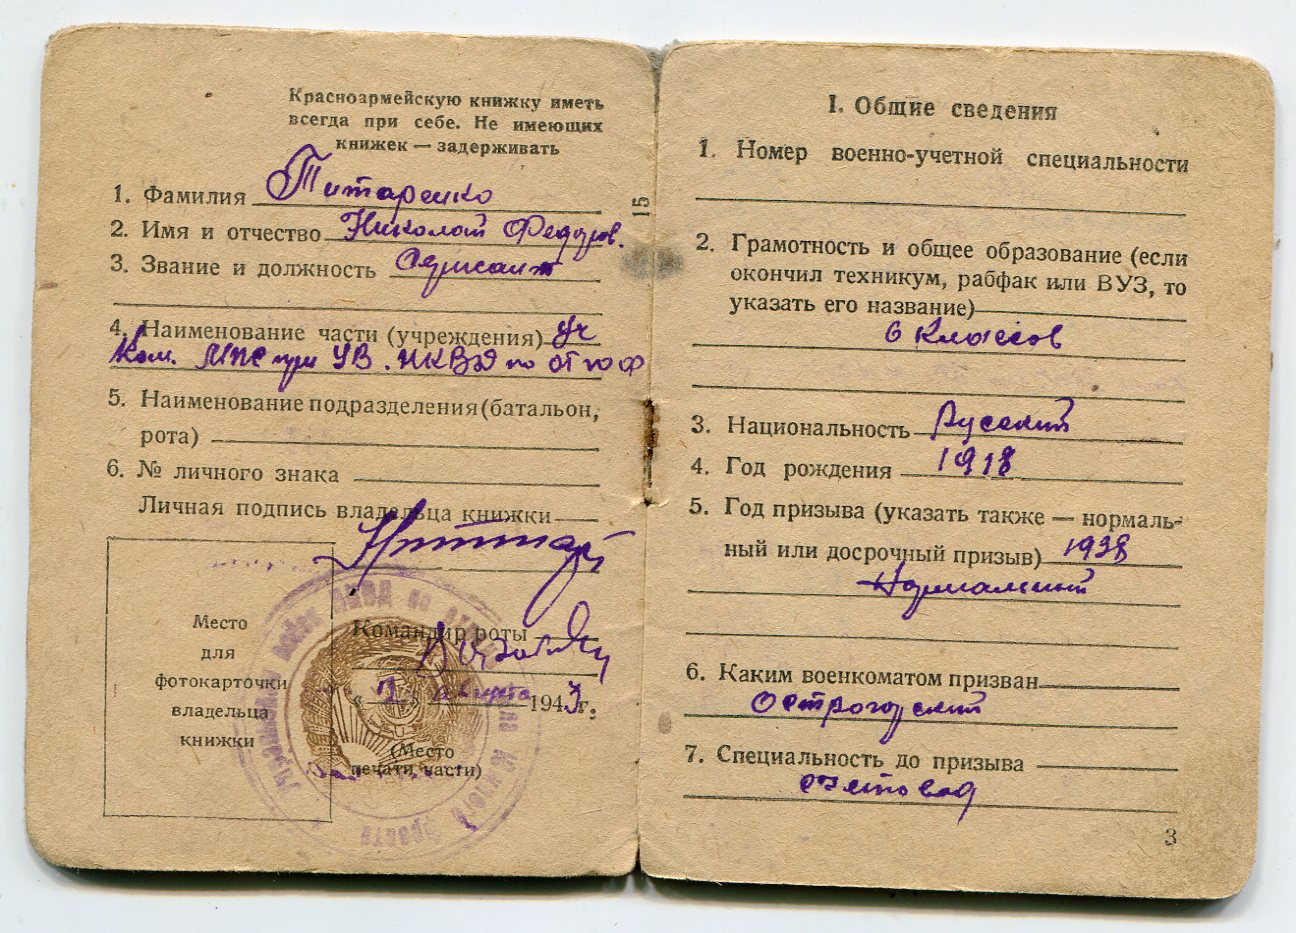 Красноармейскую книжку иметь
всегда при себе. Не имеющих
книжек — задерживать
1. Фамилия Титаренко
2. Имя и отчество Николай Федоров.
3. Звание и должность Сержант
4. Наименование части (учреждения) Уч
Ком. МПС при УВ. НКВД по ОТ ЮФ
5. Наименование подразделения (батальон,
рота)
6. № личного знака
Личная подпись владельца книжки
Место
для
фотокарточки
владельца
книжки
Командир роты
« 2 » августа 1943 г.
(Место
печати части)
Управление войск НКВД по охране
15
I. Общие сведения
1. Номер военно-учетной специальности
2. Грамотность и общее образование (если
окончил техникум, рабфак или ВУЗ, то
указать его название)
6 классов
3. Национальность Русский
4. Год рождения 1918
5. Год призыва (указать также — нормаль-
ный или досрочный призыв) 1938
Нормальный
6. Каким военкоматом призван
Острогорский
7. Специальность до призыва
счетовод
3